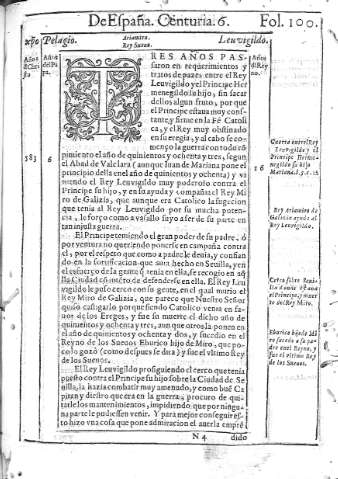 De España. Centuria. 6. Fol. 100.
xp̃o Pelagio. Arimiro. Rey Sueuo. Leuvigildo.
TRES AÑOS PAS
saron en requerimientos y
tratos de pazes entre el Rey
Leuuigildo y el Principe Her
menegildo su hijo, sin sacar
dellos algun fruto, por que
el Principe estaua muy cons-
tante, y firme en la Fè Catoli
ca, y el Rey muy obstinado
en su eregia, y al cabo se co-
menço la guerra con todo rõ
pimiento el año de quinientos y ochenta y tres, segun
el Abad de Valclara (aunque Iuan de Mariana pone el
principio della en el año de quinientos y ochenta) y va
niendo el Rey Leuuigildo muy poderoso contra el
Principe su hijo, y en su ayuda y compañia el Rey Mi
ro de Galizia, que aunque era Catolico la sugecion
que tenia al Rey Leuuigildo por su mucha poten-
cia, le forço como a vassallo suyo a ser de su parte en
tan injusta guerra.
El Principe temiendo el gran poder de su padre, ò
por ventura no queriendo ponerse en campaña contra
el, por el respeto que como a padre le deuia, y confian
do en la fortificacion que auia hecho en Seuilla, y en
el esfuerço de la gente q̃ tenia en ella, se recogio en aq̃
lla Ciudad cõ intẽto de defenderse en ella. El Rey Leu
uigildo le puso cerco con su gente, en el qual murio el
Rey Miro de Galizia, que parece que Nuestro Señor
quiso castigarlo por que siendo Catolico venia en fa-
uor de los Ereges, y fue su muerte el dicho año de
quinientos y ochenta y tres, aunque otros la ponen en
el año de quinientos y ochenta y dos, y sucedio en el
Reyno de los Sueuos Eburico hijo de Miro, que po-
co lo gozó (como despues se dira) y fue el vltimo Rey
de los Sueuos.
El Rey Leuuigildo prosiguiendo el cerco que tenia
puesto contra el Principe su hijo sobre la Ciudad de Se-
uilla, la hazia combatir muy amenudo, y como buẽ Ca
pitan y diestro que era en la guerra, procuro de qui-
tarle los mantenimientos, impidiendo que por ningu-
na parte le pudiessen venir. Y para mejor conseguir es-
to hizo vna cosa que pone admiracion el auerla empre
N 4 dido
583
6
16
Guerra entre el Rey
Leuuigildo y el
Principe Herme-
negildo su hijo
Rey Arimiro de
Galizia ayuda al
Rey Leuuigildo.
Cerco sobre Seui-
lla
el Principe, y muer
te del Rey Miro.
Eburico hijo de Mi
ro sucede a su pa-
dre en el Reyno, y
fue el vltimo Rey
de los Sueuos.